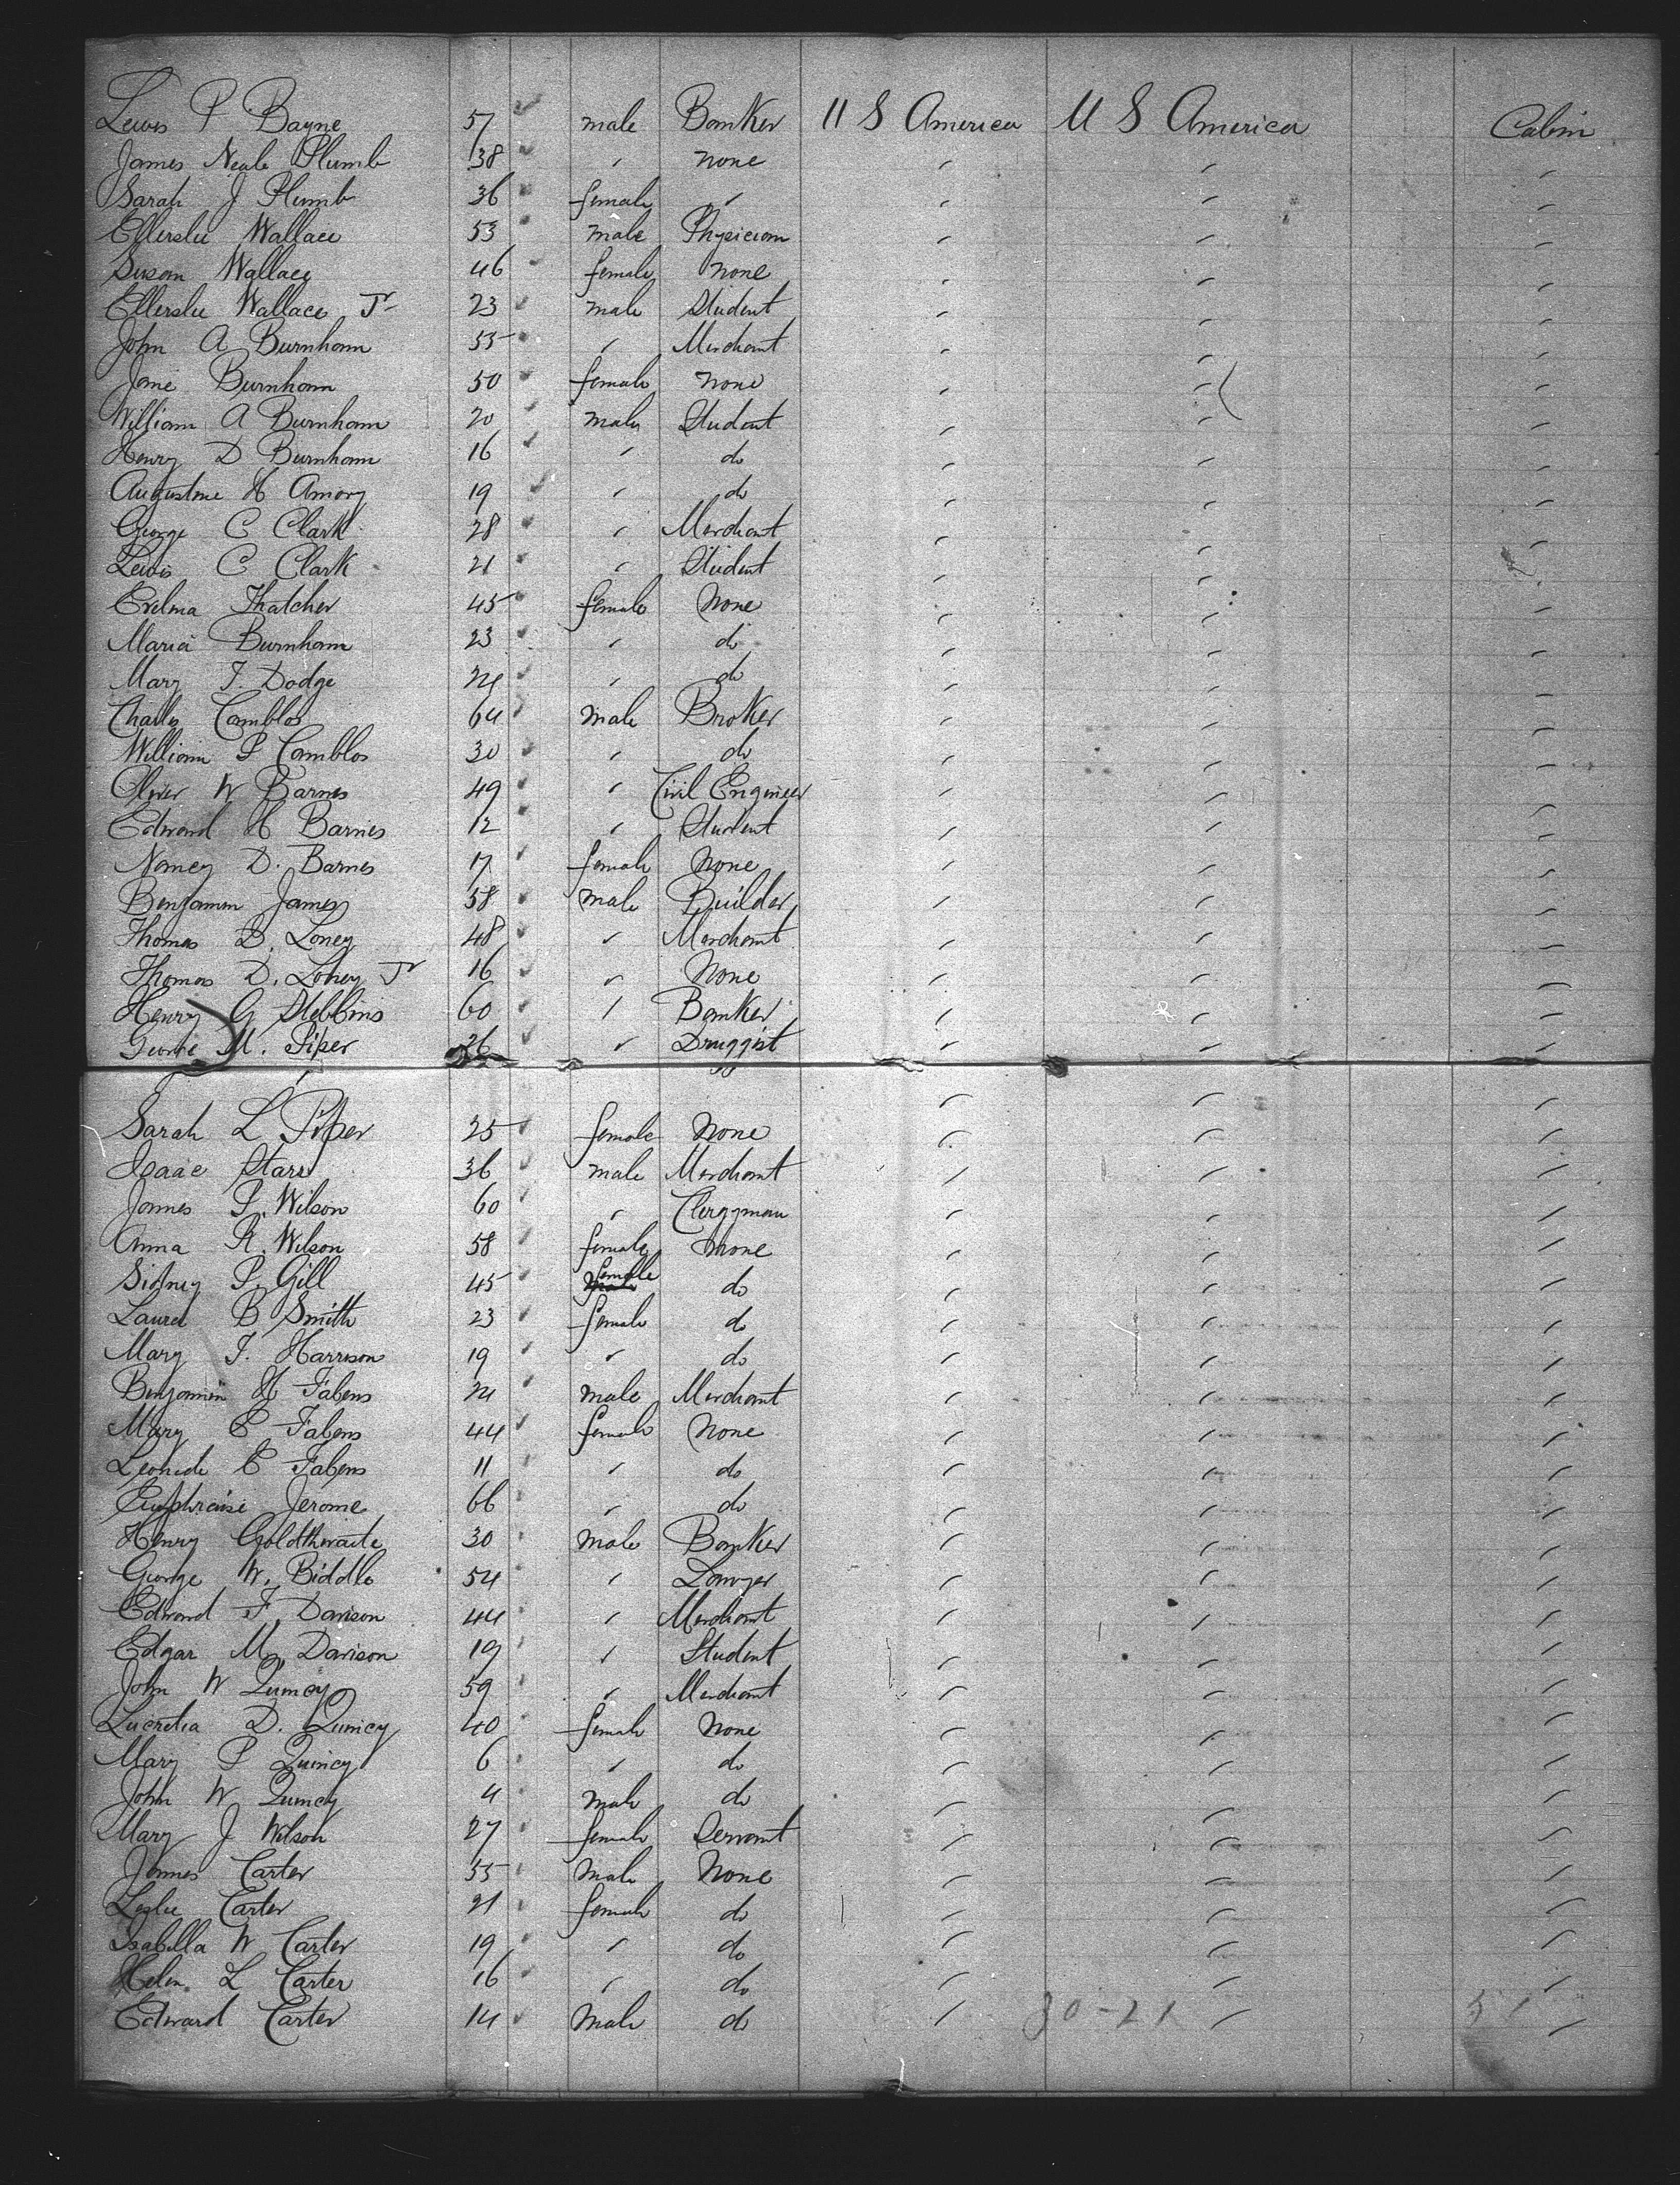 Lewis P Bayne 57 male Banker U S America U S America Cabin
James Neale Plumb 38 " none " " "
Sarah J Plumb 36 female " " " "
Ellerslie Wallace 53 male Physician " " "
Susan Wallace 46 female none " " "
Ellerslie Wallace Jr 23 male Student " " "
John A Burnham 55 " Merchant " " "
Jane Burnham 50 female none " " "
William A Burnham 20 male Student " " "
Henry D Burnham 16 " do " " "
Augustine H Amory 19 " do " " "
George C Clark 28 " Merchant " " "
Lewis C Clark 21 " Student " " "
Thatcher 45 female None " " "
Maria Burnham 23 " do " " "
Mary F Dodge 24 " do " " "
Charles Camblos 64 male Broker " " "
William P Camblos 30 " do " " "
Oliver W Barnes 49 " Civil Engineer " " "
Edward H Barnes 12 " Student " " "
Nancy D. Barnes 17 female None " " "
Benjamin James 58 male Builder " " "
Thomas D. Loney 48 " Merchant " " "
Thomas D. Loney Jr 16 " None " " "
Henry G Stebbins 60 " Banker " " "
George M. Piper 26 " Druggist " " "
Sarah L Piper 25 female None " " "
Isaac Starr 36 male Merchant " " "
James P. Wilson 60 " Clergyman " " "
Anna R. Wilson 58 female none " " "
Sidney P. Gill 45 female do " " "
Laura B Smith 23 female do " " "
Mary F. Harrison 19 " do " " "
Benjamin H Fabens 24 male Merchant " " "
Mary E Fabens 44 female None " " "
E Fabens 11 " do " " "
Jerome 66 " do " " "
Henry Goldthwaite 30 male Banker " " "
George W. Biddle 54 " Lawyer " " "
Edward F. Davison 44 " Merchant " " "
Edgar M. Davison 19 " Student " " "
John W Quincy 59 " Merchant " " "
Lucretia D. Quincy 40 female None " " "
Mary P Quincy 6 " do " " "
John W Quincy 4 male do " " "
Mary J Wilson 27 female Servant " " "
James Carter 55 male None " " "
Leslie Carter 21 female do " " "
Isabella W Carter 19 " do " " "
Helen L Carter 16 " do " " "
Edward Carter 14 Male do " " "
30-21 51